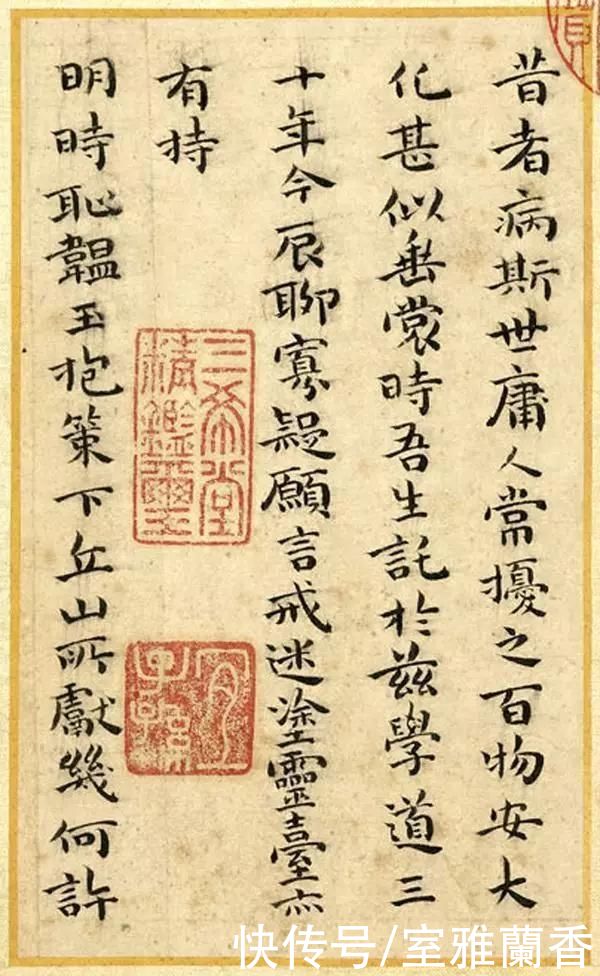 昔者病斯世庸人常擾之百物安大
化甚似垂裳時吾生託於茲學道三
十年今辰聊寡疑願言戒迷塗靈臺亦
有持
明時恥韞玉抱策下丘山所獻幾何許
三希堂
精鑑璽
宜
子孫
快传号/室雅蘭香